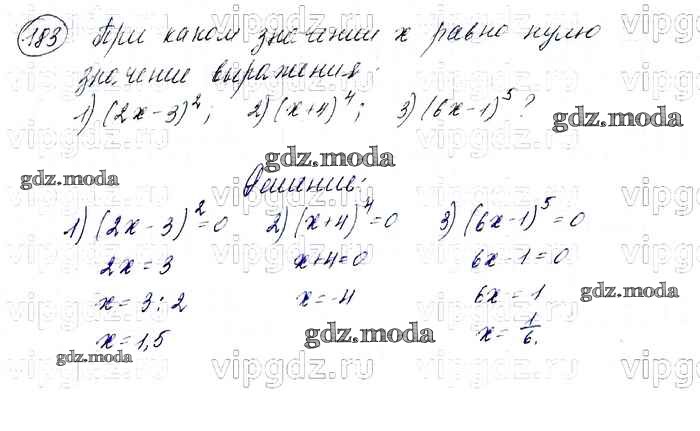 183 При каком значении x равно нулю
значение выражения:
1) (2x-3)²; 2) (x+4)⁴; 3) (6x-1)⁵?
gdz.moda
gdz.moda
gdz.moda
Решение:
1) (2x-3)²=0 2) (x+4)⁴=0 3) (6x-1)⁵=0
2x=3 x+4=0 6x-1=0
x=3:2 x=-4 6x=1
gdz.moda
x=1,5 x=1/6.
gdz.moda
gdz.moda
vipgdz.ru